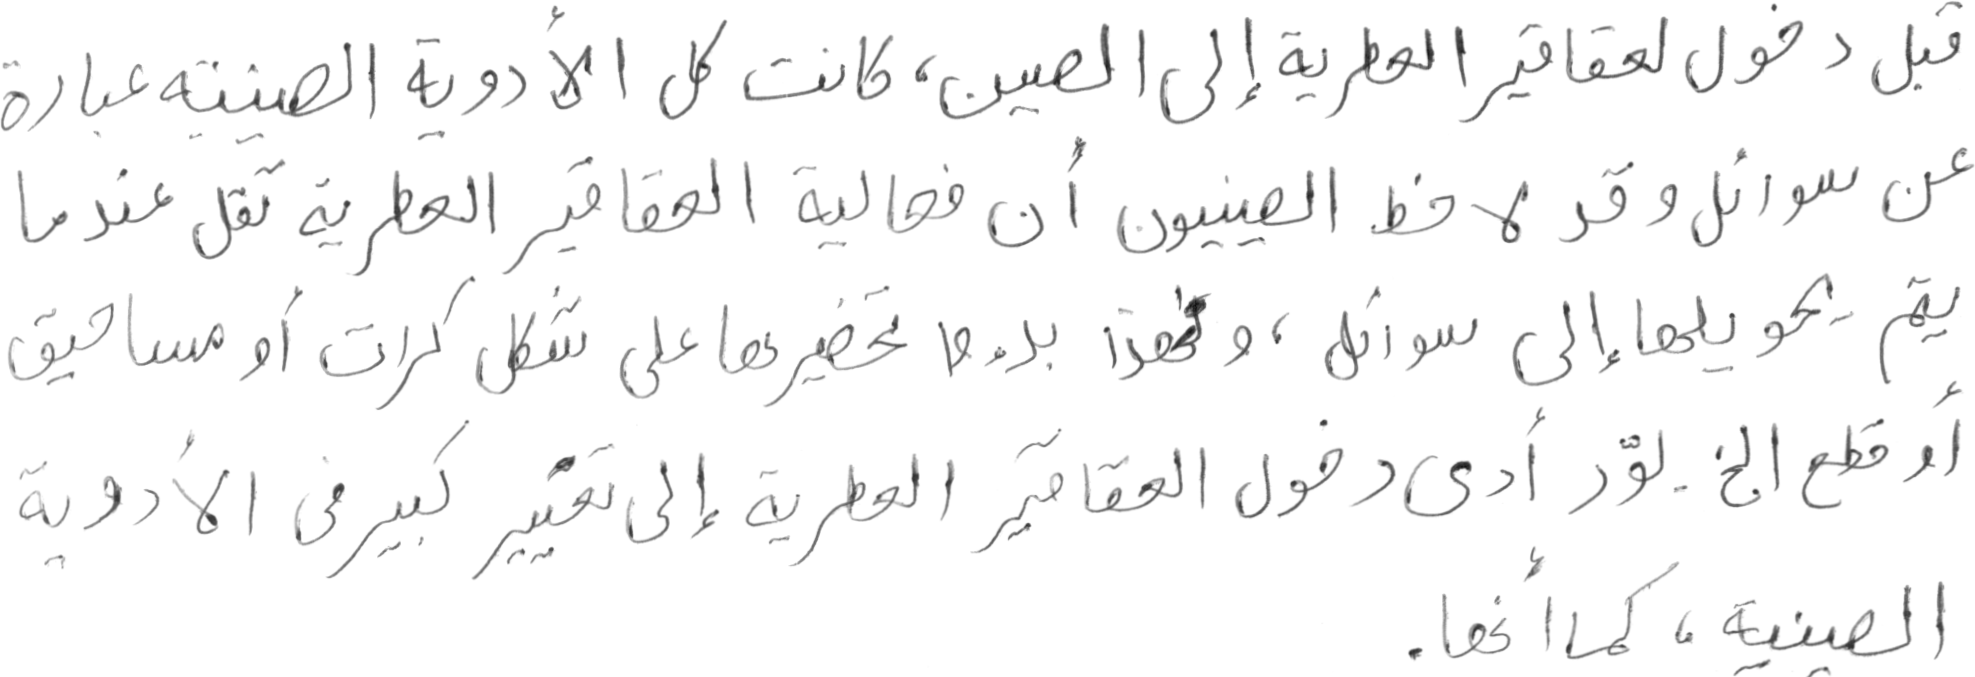 قبل دخول لعقاقير العطرية إلى الصين، كانت كل الأدوية الصينية عبارة
عن سوائل وقد لاحظ الصينيون أن فعالية العقاقير العطرية تقل عندما
يتم تحويلها إلى سوائل، ولهذا بدءوا تحضيرها على شكل كرات أو مساحيق
أو قطع الخ. أدى دخول العقاقير العطرية إلى تغيير كبير في الأدوية
الصينية، كما أنها.